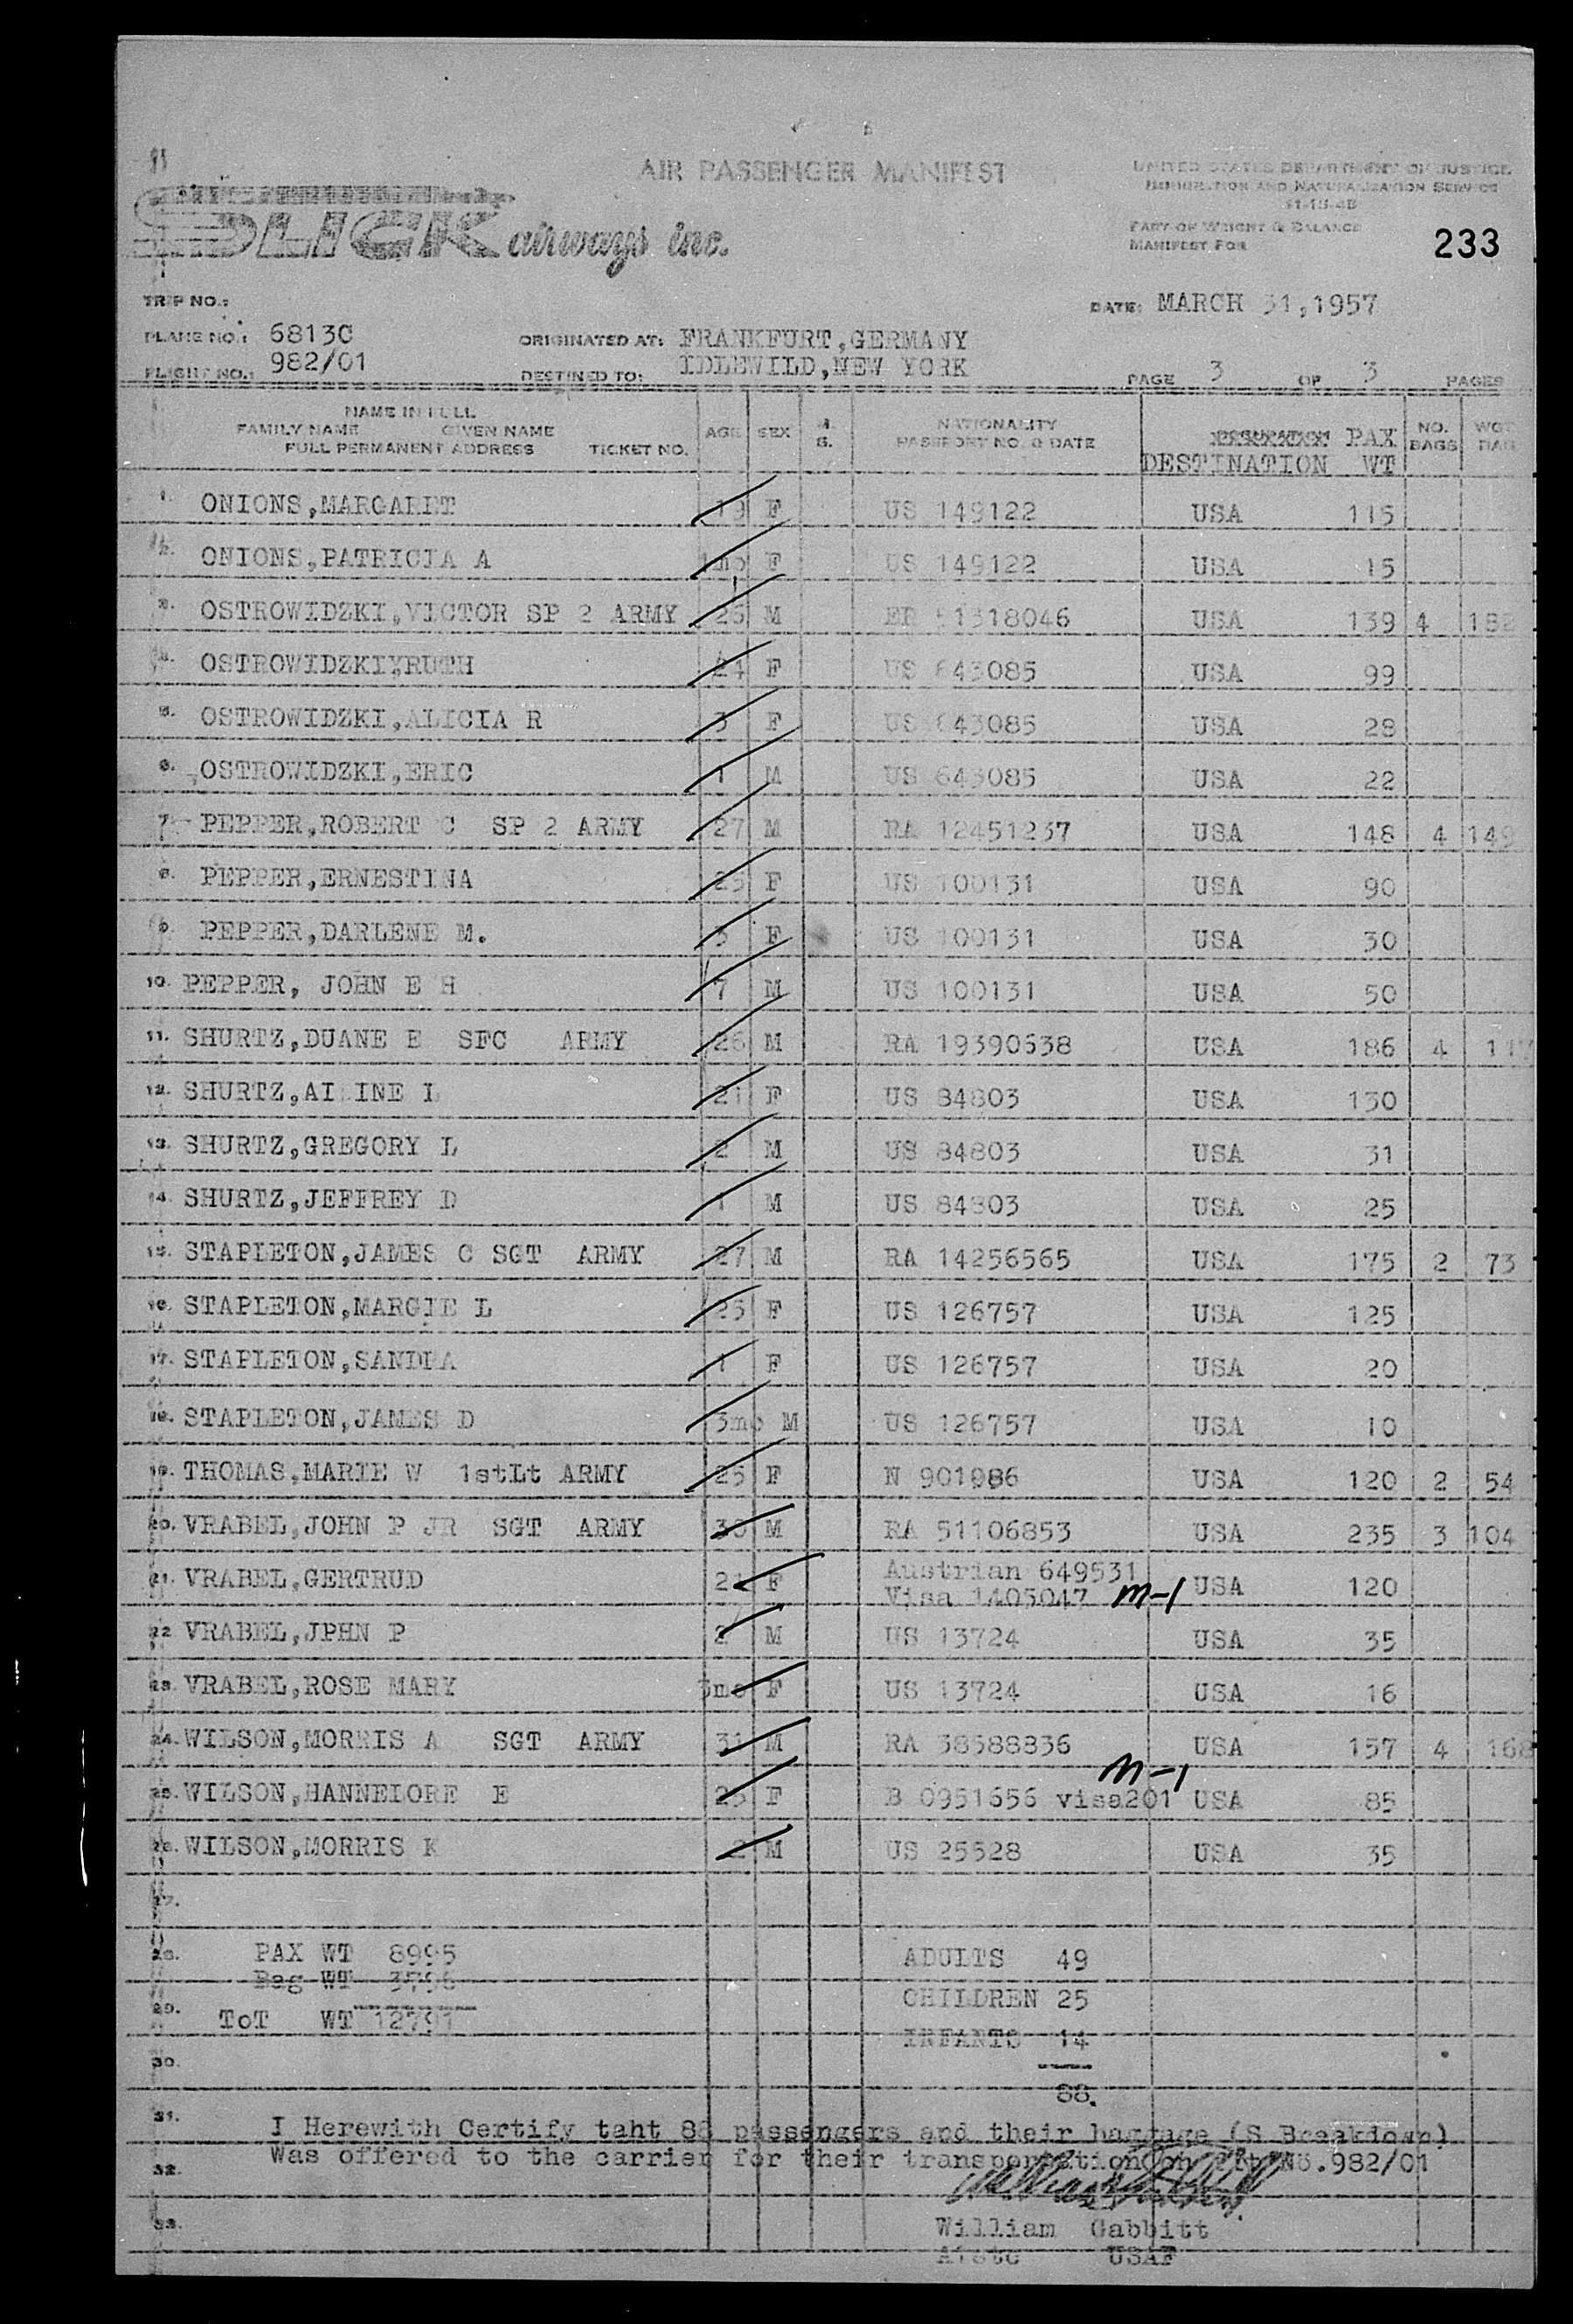 AIR PASSENGER MANIFEST
UNITED STATES DEPARTMENT OF JUSTICE
IMMIGRATION AND NATURALIZATION SERVICE
PART OF WEIGHT & BALANCE
MANIFEST FOR
233
SLICK airways inc.
TRIP NO.:
DATE: MARCH 31,1957
PLANE NO.: 6813C
ORIGINATED AT: FRANKFURT,GERMANY
FLIGHT NO.: 982/01
DESTINED TO: IDLEWILD,NEW YORK
PAGE 3 OF 3 PAGES
NAME IN FULL
FAMILY NAME GIVEN NAME
FULL PERMANENT ADDRESS TICKET NO.
AGE SEX M. S.
NATIONALITY
PASSPORT NO. & DATE
DESTINATION PAX WT
NO. BAGS WGT BAG
1. ONIONS,MARGARET 19 F US 149122 USA 115
2. ONIONS,PATRICIA A 1mo F US 149122 USA 15
3. OSTROWIDZKI,VICTOR SP 2 ARMY 26 M ER 51318046 USA 139 4 182
4. OSTROWIDZKIYRUTH 24 F US 643085 USA 99
5. OSTROWIDZKI,ALICIA R 3 F US 643085 USA 28
6. OSTROWIDZKI,ERIC 1 M US 643085 USA 22
7. PEPPER,ROBERT C SP 2 ARMY 27 M RA 12451237 USA 148 4 149
8. PEPPER,ERNESTINA 25 F US 100131 USA 90
9. PEPPER,DARLENE M. 3 F US 100131 USA 30
10. PEPPER, JOHN E H 7 M US 100131 USA 50
11. SHURTZ,DUANE E SFC ARMY 26 M RA 19390638 USA 186 4 117
12. SHURTZ, L 21 F US 84803 USA 130
13. SHURTZ,GREGORY L 2 M US 84803 USA 31
14. SHURTZ,JEFFREY D 1 M US 84803 USA 25
15. STAPLETON,JAMES C SGT ARMY 27 M RA 14256565 USA 175 2 73
16. STAPLETON,MARGIE L 25 F US 126757 USA 125
17. STAPLETON,SANDRA 1 F US 126757 USA 20
18. STAPLETON,JAMES D 3mo M US 126757 USA 10
19. THOMAS,MARIE W 1stLt ARMY 25 F N 901986 USA 120 2 54
20. VRABEL,JOHN P JR SGT ARMY 30 M RA 51106853 USA 235 3 104
21. VRABEL,GERTRUD 21 F Austrian 649531 USA 120
Visa 1405047 M-1
22 VRABEL,JPHN P 2 M US 13724 USA 35
23. VRABEL,ROSE MARY 3mo F US 13724 USA 16
24. WILSON,MORRIS A SGT ARMY 31 M RA 38588836 USA 157 4 168
M-1
25. WILSON,HANNELORE E 23 F B 0951656 visa201 USA 85
26. WILSON,MORRIS K 2 M US 25528 USA 35
27.
28. PAX WT 8995 ADULTS 49
Bag WT 3796
CHILDREN 25
29. ToT WT 12791
INFANTS 14
30.
88.
31. I Herewith Certify taht 88 passengers and their baggage (S Breakdown)
Was offered to the carrier for their transportation on Flt N6.982/01
32.
33. William Gabbitt
USAF